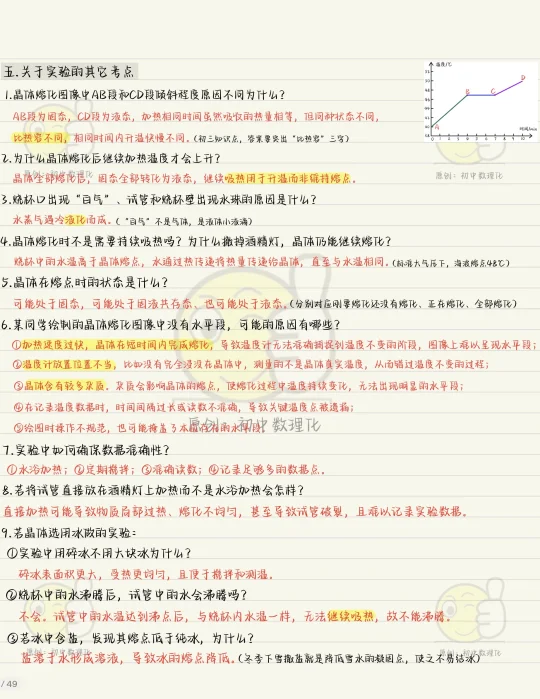 五.关于实验的其它考点
1.晶体熔化图像中AB段和CD段倾斜程度原因不同为什么?
AB段为固态,CD段为液态,加热相同时间虽然吸收的热量相等,但同种状态不同,
比热容不同,相同时间内升温快慢不同。(初三知识点,答案要突出“比热容”三字)
2.为什么晶体熔化后继续加热温度才会上升?
晶体全部熔化后,固态全部转化为液态,继续吸热用于升温而非维持熔点。
3.烧杯口出现“白气”、试管和烧杯壁出现水珠的原因是什么?
水蒸气遇冷液化而成。(“白气”不是气体,是液体小液滴)
4.晶体熔化时不是需要持续吸热吗?为什么撤掉酒精灯,晶体仍能继续熔化?
烧杯中的水温高于晶体熔点,水通过热传递将热量传递给晶体,直至与水温相同。(标准大气压下,海波熔点48℃)
5.晶体在熔点时的状态是什么?
可能处于固态,可能处于固液共存态、也可能处于液态。(分别对应刚要熔化还没有熔化、正在熔化、全部熔化)
6.某同学绘制的晶体熔化图像中没有水平段,可能的原因有哪些?
①加热速度过快,晶体在短时间内完成熔化,导致温度计无法准确捕捉到温度不变的阶段,图像上难以呈现水平段;
②温度计放置位置不当,比如没有完全浸没在晶体中,测量的不是晶体真实温度,从而错过温度不变的过程;
③晶体含有较多杂质。杂质会影响晶体的熔点,使熔化过程中温度持续变化,无法出现明显的水平段;
④在记录温度数据时,时间间隔过长或读数不准确,导致关键温度点被遗漏;
⑤绘图时操作不规范,也可能掩盖了本应存在的水平段。
7.实验中如何确保数据准确性?
①水浴加热;②定期搅拌;③准确读数;④记录足够多的数据点。
8.若将试管直接放在酒精灯上加热而不是水浴加热会怎样?
直接加热可能导致物质局部过热、熔化不均匀,甚至导致试管破裂,且难以记录实验数据。
9.若晶体选用冰做的实验:
①实验中用碎冰不用大块冰为什么?
碎冰表面积更大,受热更均匀,且便于搅拌和测温。
②烧杯中的水沸腾后,试管中的水会沸腾吗?
不会。试管中的水温达到沸点后,与烧杯内水温一样,无法继续吸热,故不能沸腾。
③若冰中含盐,发现其熔点低于纯冰,为什么?
盐溶于水形成溶液,导致冰的熔点降低。(冬季下雪撒盐就是降低雪水的凝固点,使之不易结冰)
/ 49
温度/℃
时间/min
A
B
C
D
原创:初中数理化
原创:初中数理化
原创:初中数理化
原创:初中数理化
原创:初中数理化